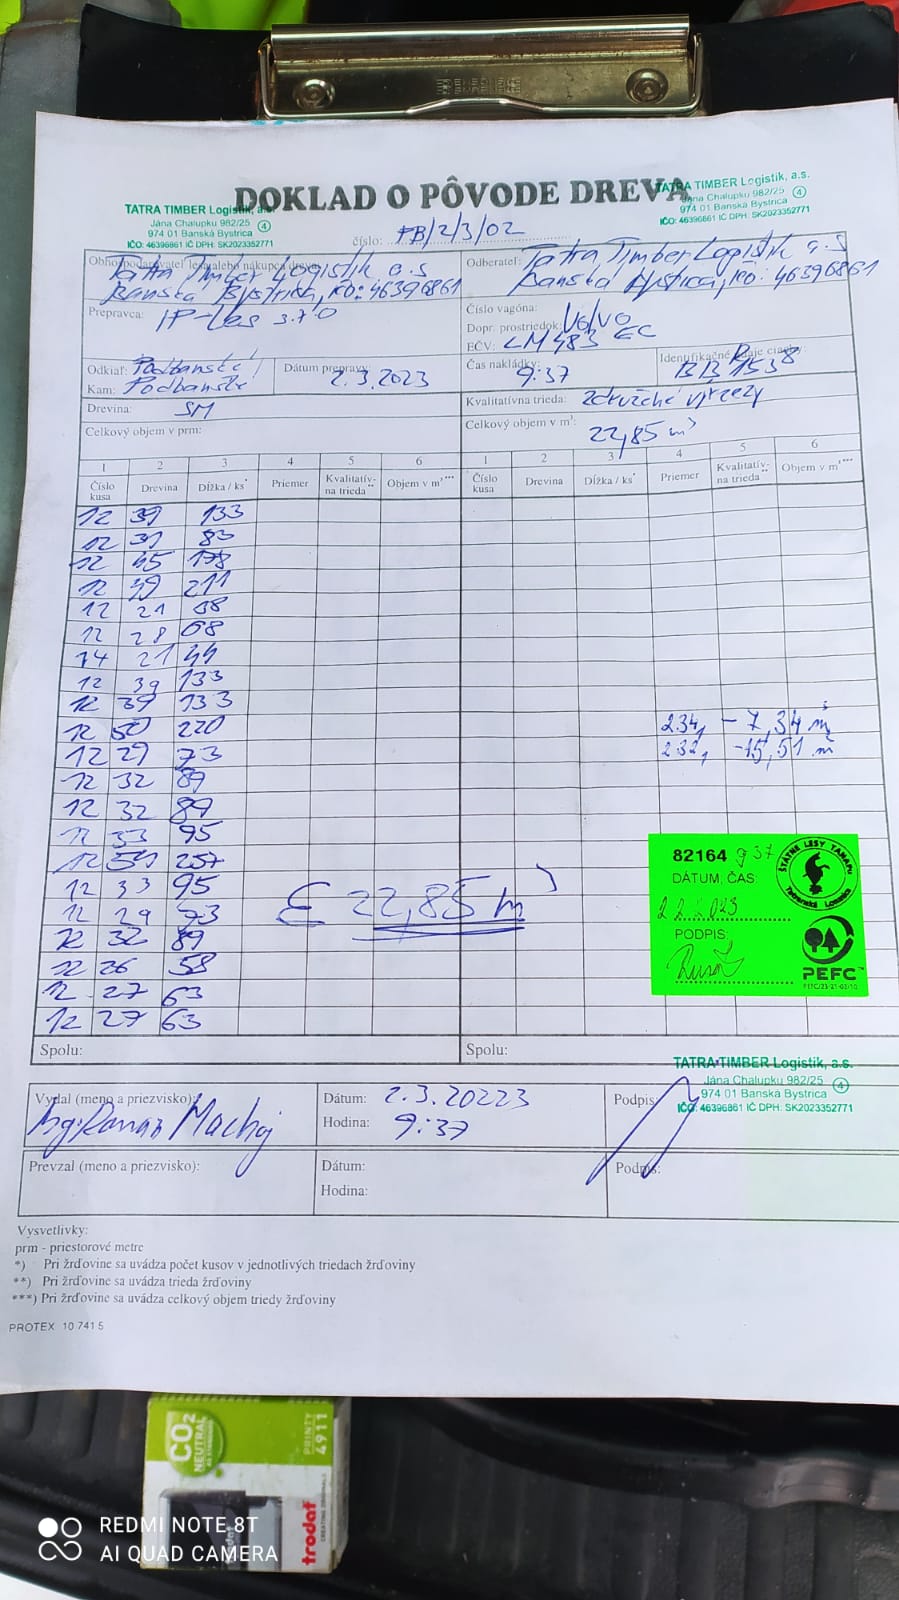 DOKLAD O PÔVODE DREVA
TATRA TIMBER Logistik, a.s.
Jána Chalupku 982/25
974 01 Banská Bystrica
4
IČO: 46396861 IČ DPH: SK2023352771
TATRA TIMBER Logistik, a.s.
Jána Chalupku 982/25
974 01 Banská Bystrica
4
IČO: 46396861 IČ DPH: SK2023352771
číslo: PB/2/3/02
Tatra Timber Logistik a.s
Banská Bystrica, IČO: 46396861
Odberateľ: Tatra Timber Logistik a.s
Banská Bystrica, IČO: 46396861
Prepravca: IP-Les s.r.o
Číslo vagóna:
Dopr. prostriedok: VOLVO
EČV: LM 483 EC
Odkiaľ: Podbanské
Kam: Podbanské
Dátum prepravy: 2.3.2023
Čas nakládky: 9:37
Identifikačné údaje ciachy
Drevina: SM
Kvalitatívna trieda: združené výrezy
Celkový objem v prm:
Celkový objem v m³: 22,85 m³
1 2 3 4 5 6 1 2 3 4 5 6
Číslo kusa Drevina Dĺžka / ks* Priemer Kvalitatív-na trieda** Objem v m³*** Číslo kusa Drevina Dĺžka / ks* Priemer Kvalitatív-na trieda** Objem v m³***
12 39 133
12 31 83
12 45 178
12 49 211
12 21
12 28 68
14 21 44
12 39 133
12 39 133
12 50 220
234, - 7,34 m
12 29 73
232, -15,51 m
12 32 89
12 32 89
12 33 95
12 54 257
12 33 95
12 29 73
12 32 89
12 26 58
12 27 63
12 27 63
Σ 22,85 m³
82164 937
DÁTUM, ČAS:
2023
PODPIS:
ŠTÁTNE LESY TANAPU
Tatranská Lomnica
PEFC™
Spolu:
Spolu:
TATRA TIMBER Logistik, a.s.
Jána Chalupku 982/25
974 01 Banská Bystrica
4
IČO: 46396861 IČ DPH: SK2023352771
Vydal (meno a priezvisko):
Ing. Roman Machaj
Dátum: 2.3.20223
Hodina: 9:37
Podpis:
Prevzal (meno a priezvisko):
Dátum:
Hodina:
Podpis:
Vysvetlivky:
prm - priestorové metre
*) Pri žrďovine sa uvádza počet kusov v jednotlivých triedach žrďoviny
**) Pri žrďovine sa uvádza trieda žrďoviny
***) Pri žrďovine sa uvádza celkový objem triedy žrďoviny
PROTEX 10 741 5
CO2
NEUTRAL
PRINTY
4911
trodat
REDMI NOTE 8T
AI QUAD CAMERA